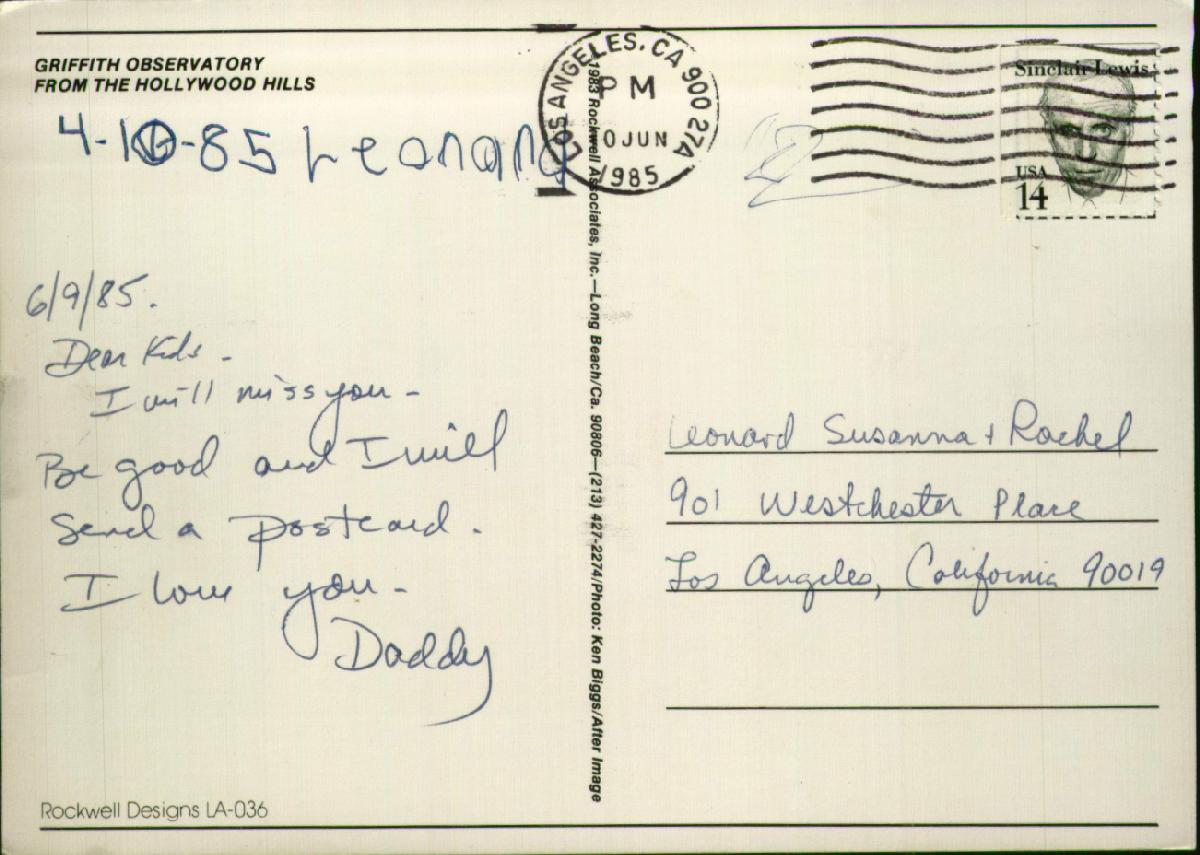 GRIFFITH OBSERVATORY
FROM THE HOLLYWOOD HILLS
4-10-85 Leonard
6/9/85.
Dear Kids -
I will miss you -
Be good and I will
send a postcard.
I love you -
Daddy
Rockwell Designs LA-036
1983 Rockwell Associates, Inc.—Long Beach/Ca. 90806—(213) 427-2274/Photo: Ken Biggs/After Image
LOS ANGELES, CA 900 27A
PM
10 JUN
1985
Sinclair Lewis
USA
14
Leonard Susanna + Rachel
901 Westchester Place
Los Angeles, California 90019